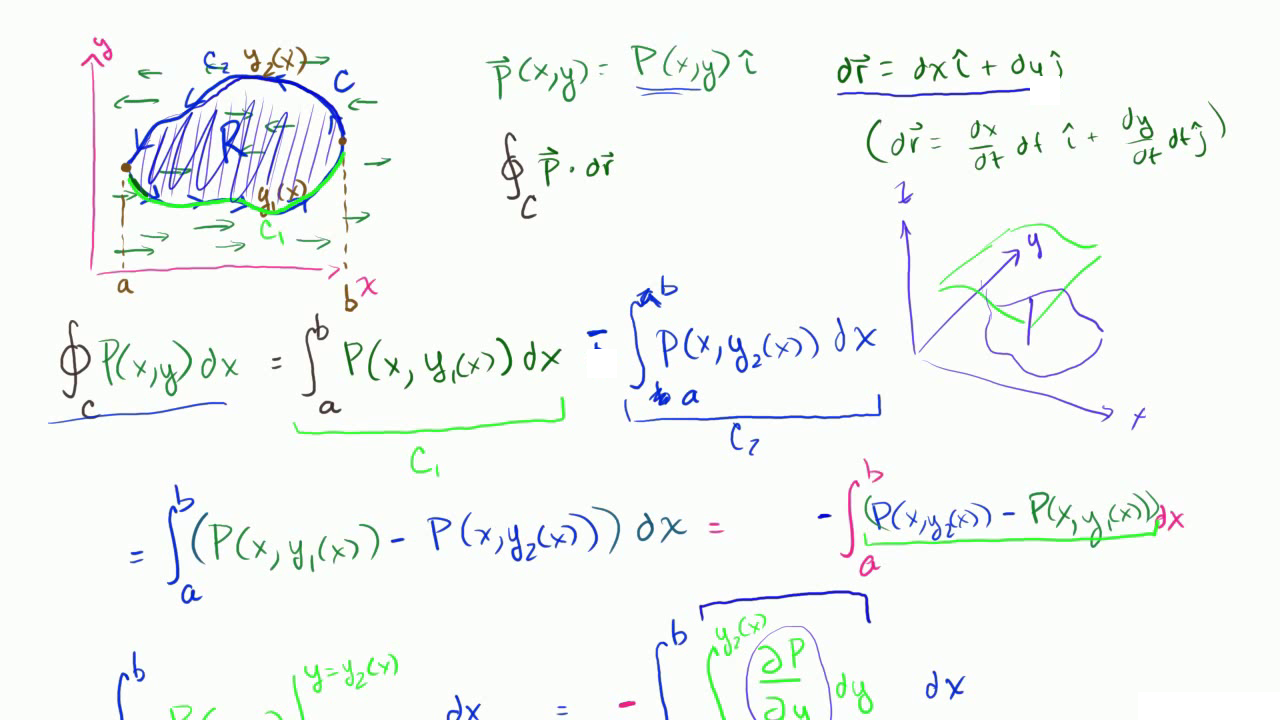 y
C₂ y₂(x) C
R
y₁(x)
C₁
a b x
p⃗(x,y) = P(x,y) î
∮_C p⃗ · dr⃗
dr⃗ = dx î + dy ĵ
(dr⃗ = dx/dt dt î + dy/dt dt ĵ)
z
y
x
∮_C P(x,y) dx = ∫_a^b P(x, y₁(x)) dx - ∫_a^b P(x, y₂(x)) dx
C₁ C₂
= ∫_a^b (P(x, y₁(x)) - P(x, y₂(x))) dx = - ∫_a^b (P(x, y₂(x)) - P(x, y₁(x))) dx
∫^b |^{y=y₂(x)} dx = - ∫^b ∫^{y₂(x)} ∂P/∂y dy dx